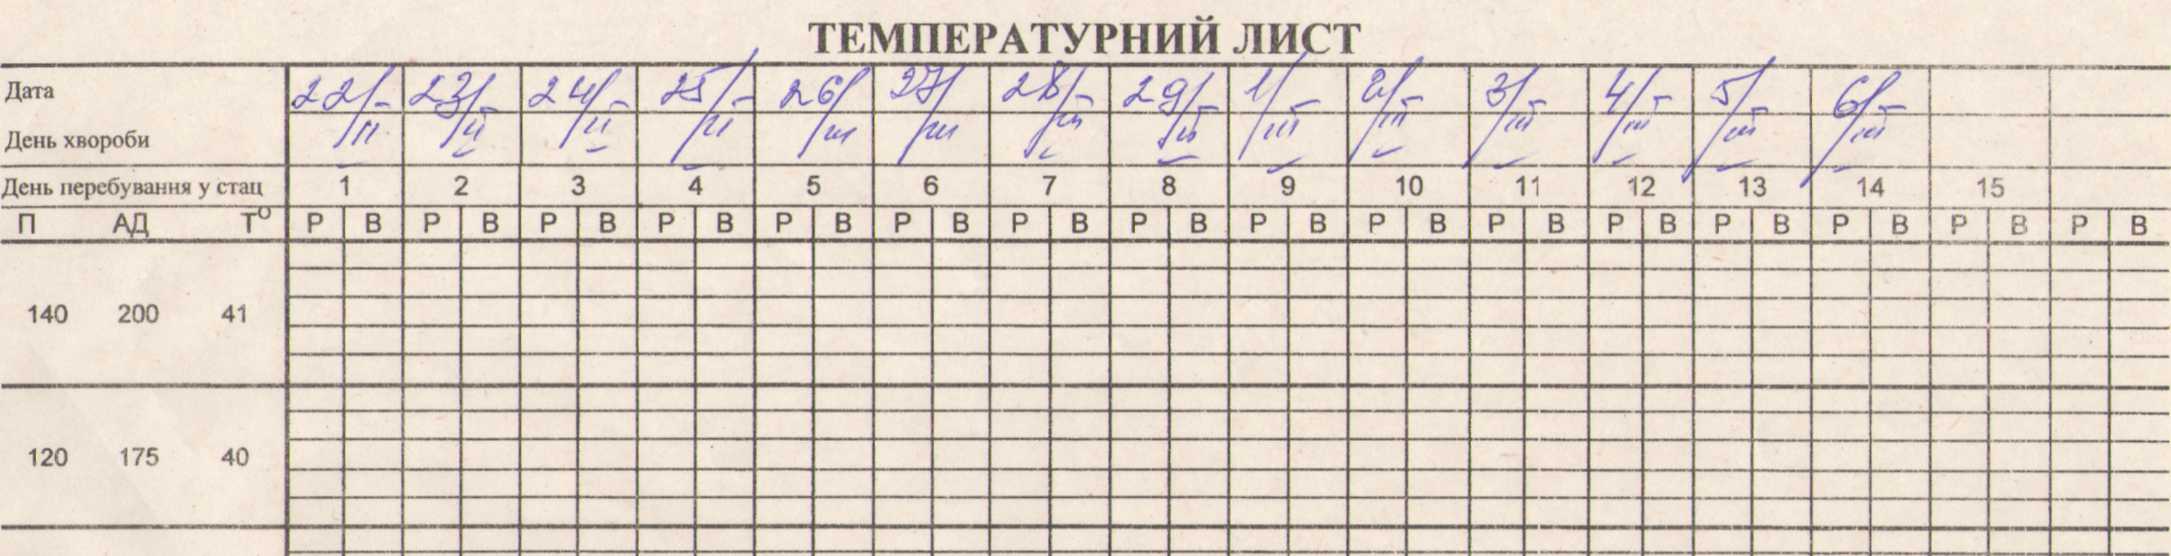 ТЕМПЕРАТУРНИЙ ЛИСТ
Дата 22/II 23/II 24/II 25/II 26/III 27/III 28/III 29/III 1/III 2/III 3/III 4/III 5/III 6/III
День хвороби
День перебування у стац 1 2 3 4 5 6 7 8 9 10 11 12 13 14 15
П АД Т° Р В Р В Р В Р В Р В Р В Р В Р В Р В Р В Р В Р В Р В Р В Р В Р В
140 200 41
120 175 40